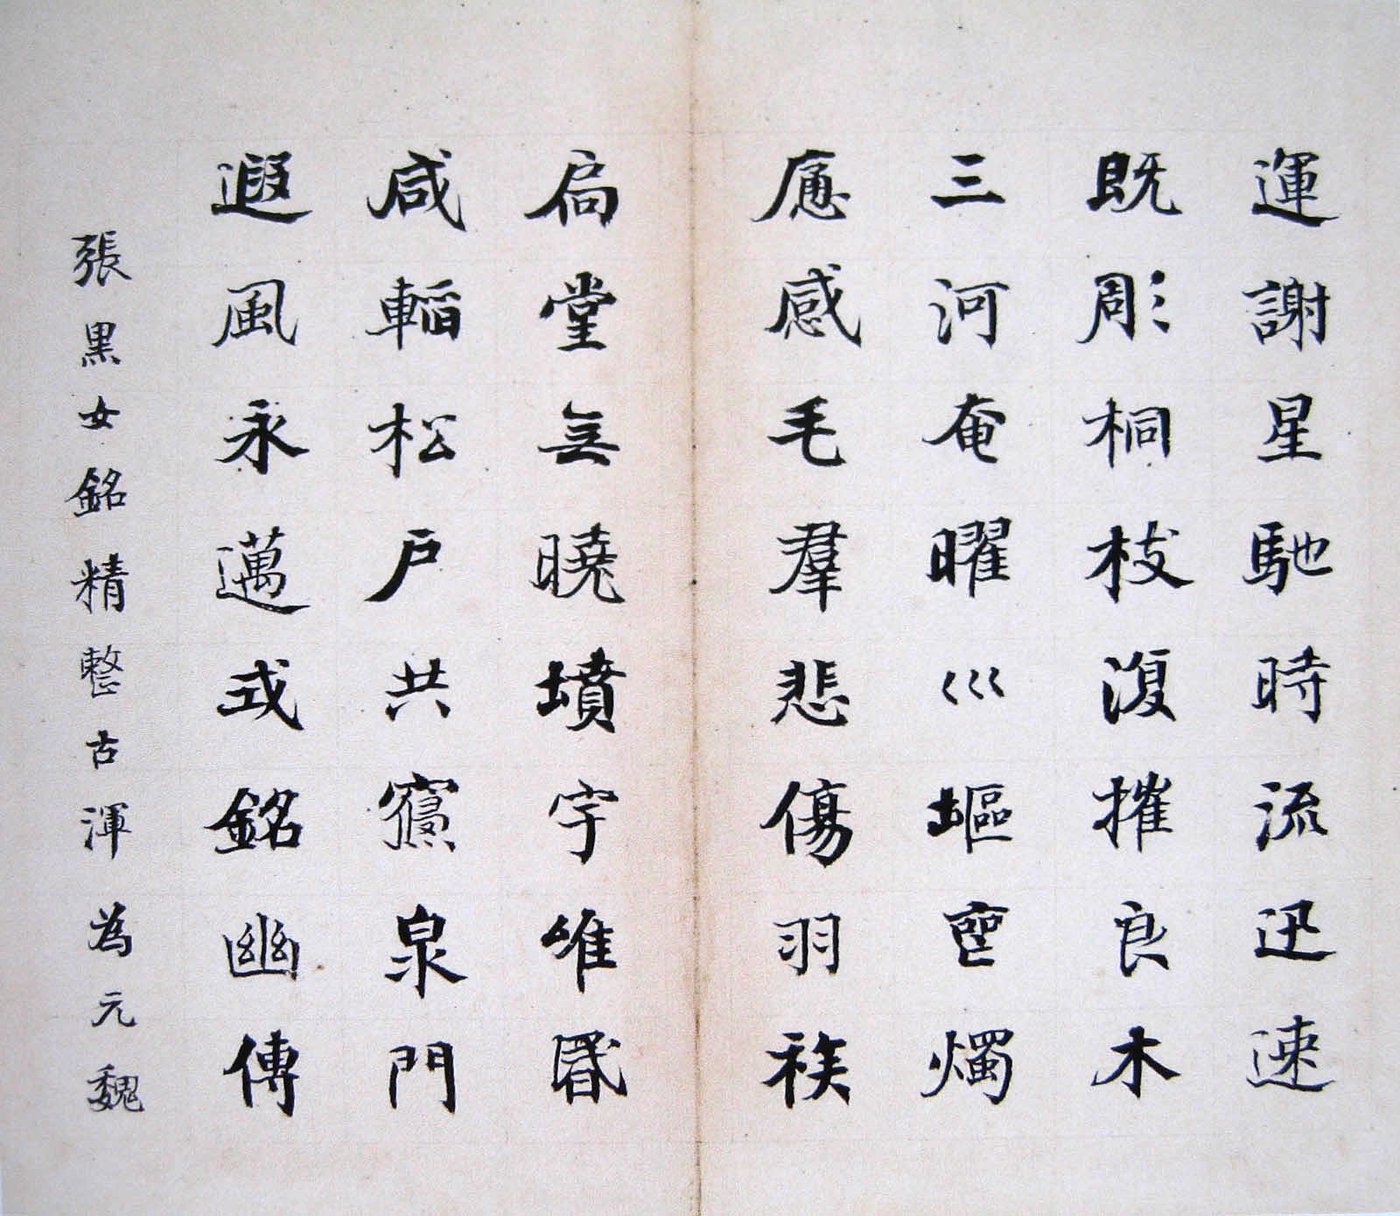 運謝星馳時流迅速
既彫桐枝復摧良木
三河奄曜巛堰䆠燭
應感毛羣悲傷羽族
扃堂無曉墳宇唯昏
咸韜松戶共寢泉門
遐風永邁式銘幽傳
張黑女銘精整古渾為元魏